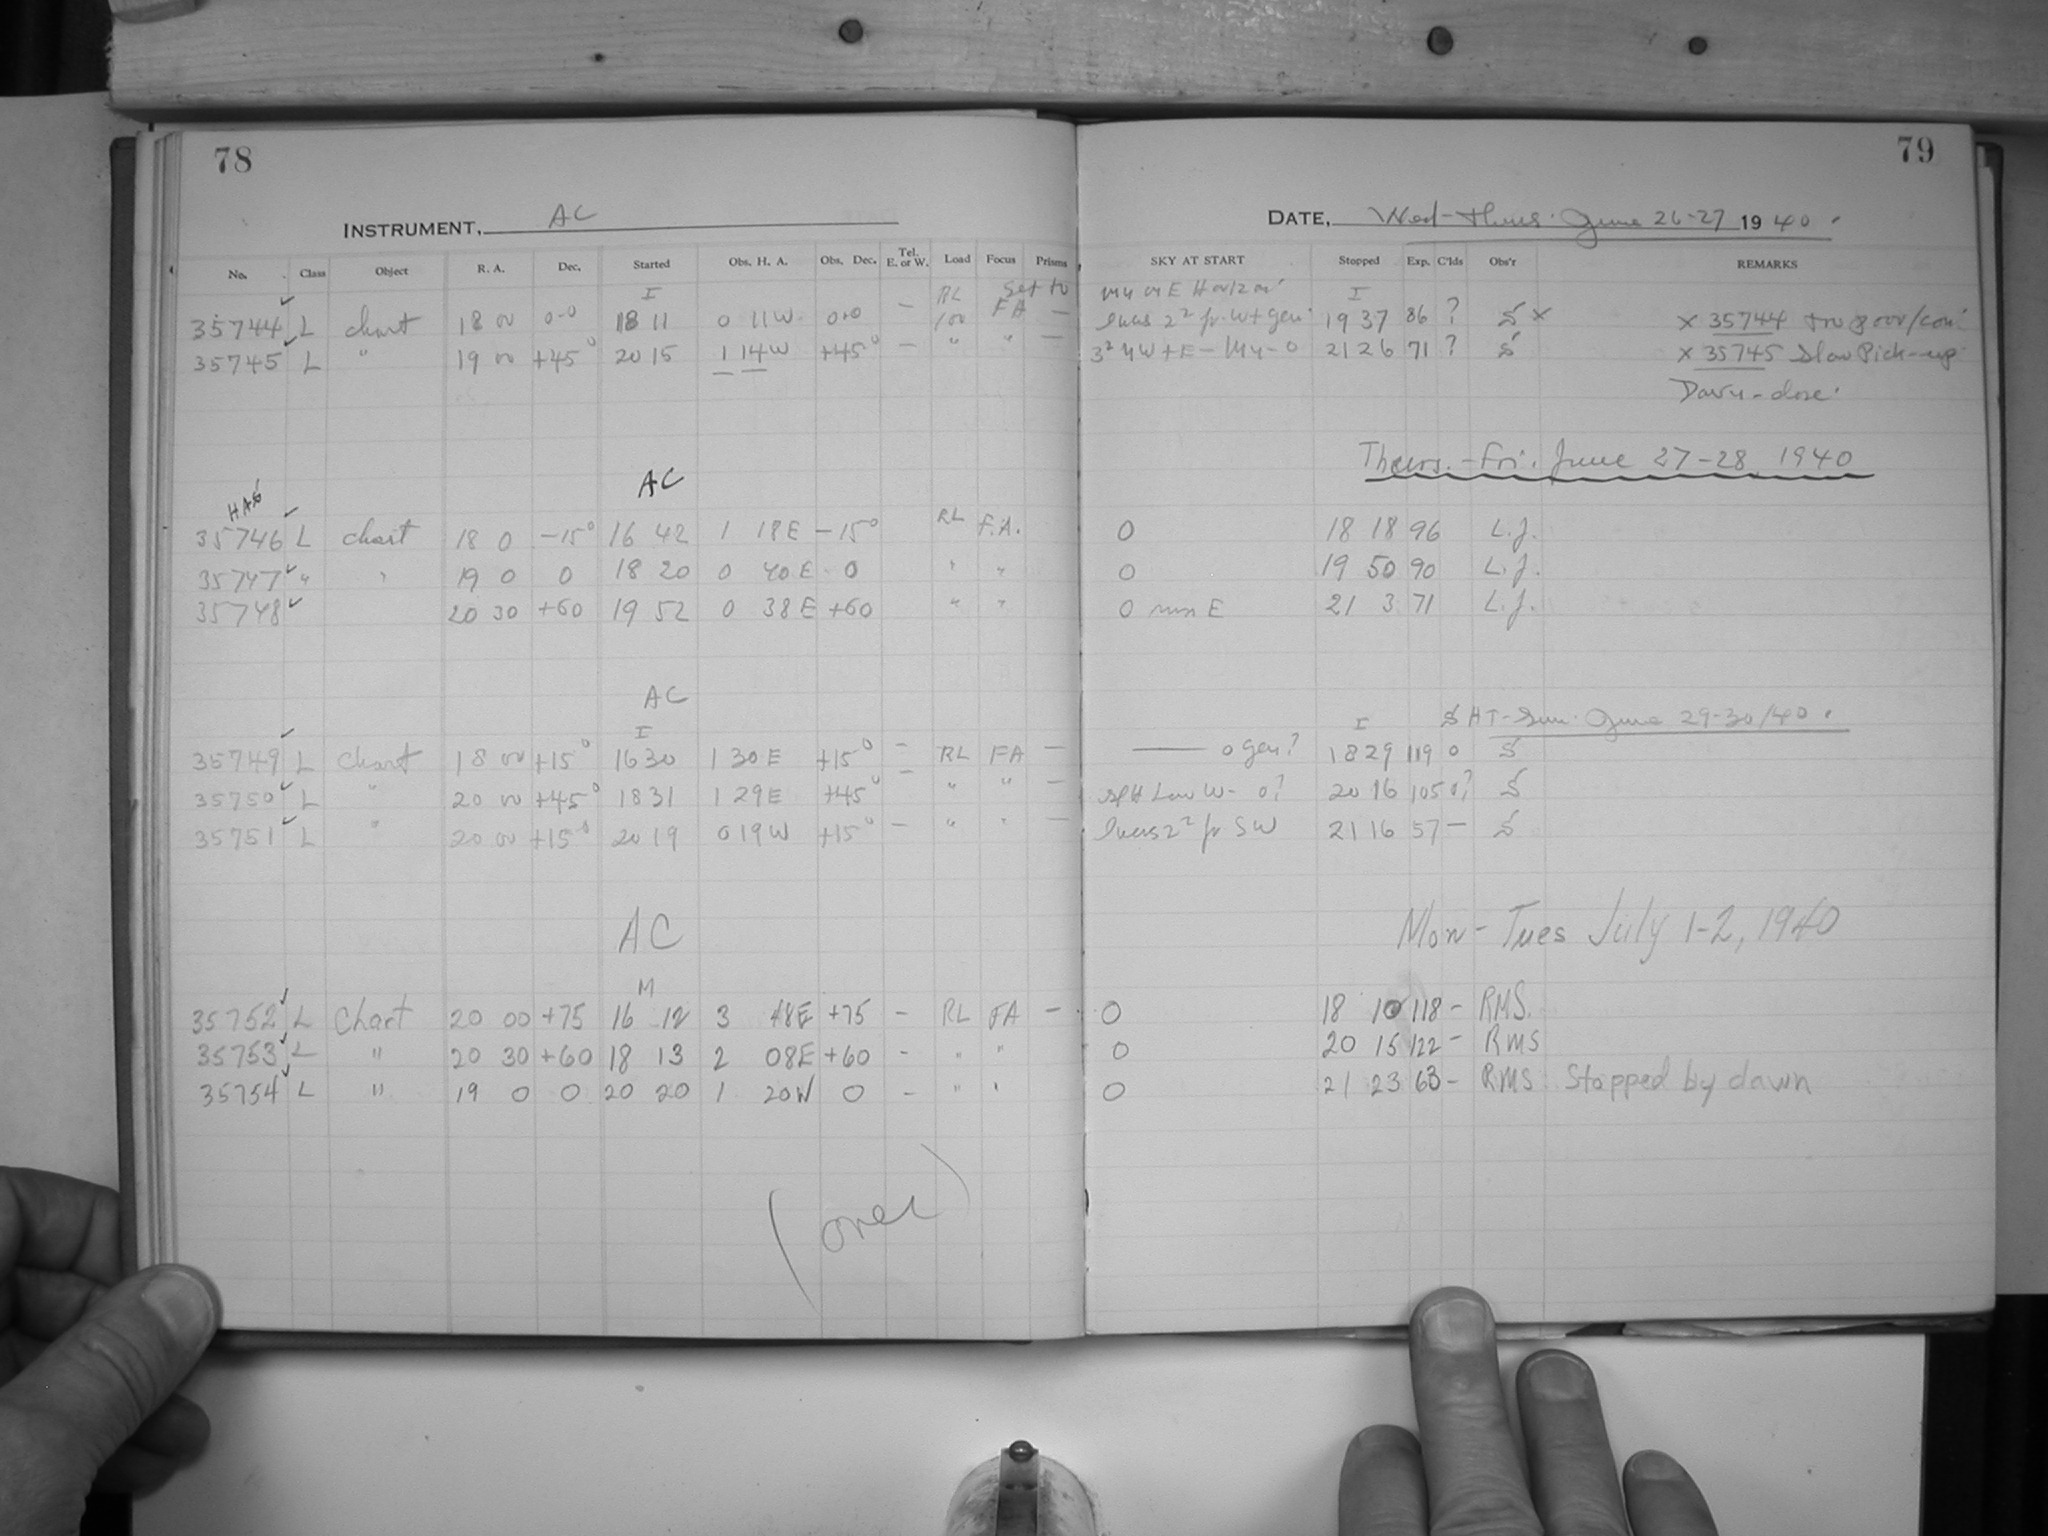 78
79
INSTRUMENT, AC
DATE, Wed-Thurs. June 26-27 1940.
No. Class Object R. A. Dec. Started Obs. H. A. Obs. Dec. Tel. E. or W. Load Focus Prisms SKY AT START Stopped Exp. C'lds Obs'r REMARKS
I RL Set to I
35744 L chart 18 00 0-0 18 11 0 11W 0+0 — 100 FA — 19 37 86 ? S x x 35744
35745 L " 19 00 +45° 20 15 1 14W +45° — " " — 21 26 71 ? S x 35745 Slow Pick-up
Dawn-close.
AC Thurs.-Fri. June 27-28, 1940
35746 L chart 18 0 -15° 16 42 1 18E -15° RL F.A. 0 18 18 96 L.J.
35747 " " 19 0 0 18 20 0 40E 0 " " 0 19 50 90 L.J.
35748 20 30 +60 19 52 0 38E +60 " " 0 E 21 3 71 L.J.
AC
I I SAT-Sun. June 29-30/40.
35749 L Chart 18 00 +15° 16 30 1 30E +15° — RL FA — — 0 gen? 18 29 119 0 S
35750 L " 20 00 +45° 18 31 1 29E +45° — " " — Low W- 0? 20 16 105 0? S
35751 L " 20 00 +15° 20 19 0 19W +15° — " " — SW 21 16 57 — S
AC Mon-Tues July 1-2, 1940
M
35752 L Chart 20 00 +75 16 12 3 48E +75 - RL FA - 0 18 10 118 - RMS.
35753 L " 20 30 +60 18 13 2 08E +60 - " " 0 20 15 122 - RMS
35754 L " 19 0 0 20 20 1 20W 0 - " " 0 21 23 63 - RMS Stopped by dawn
(over)